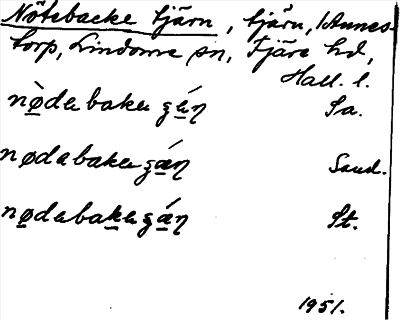 Nötebacke tjärn, tjärn, Annes-
torp, Lindome sn, Fjäre hd,
Hall. l.
nø̀dabakaʒǽn Sa.
nødabakaʒǽn Sand.
nødabakaʒǽn St.
1951.